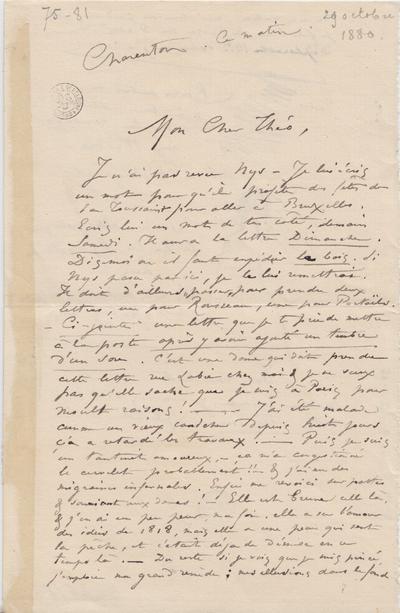 75-81
29 octobre
1880.
Charenton Ce matin
Mon Cher Théo,
Je n'ai pas revu Nys — Je lui écris
un mot pour qu'il profite des fêtes de
la Toussaint pour aller à Bruxelles.
Ecris lui un mot de ton côté, demain
Samedi. Il aura la lettre Dimanche.
Dis-moi où il faut expédier le bois. Si
Nys passe par ici, je le lui remettrai.
Il doit d'ailleurs, passer, pour prendre deux
lettres, une pour Rousseau, une pour
— Ci-jointe une lettre que je te prie de mettre
à la poste après y avoir ajouté un timbre
d'un sou. C'est une dame qui doit prendre
cette lettre rue Labie chez moi & je ne veux
pas qu'elle sache que je suis à Paris pour
moult raisons! — J'ai été malade
comme un vieux depuis huit jours
ça a retardé les travaux! — Puis je suis
un tantinet amoureux — ça m'a congestionné
le cervelet probablement!! & j'ai eu des
migraines infernales. Enfin me revoici sur pattes
& souriant aux dames! — Elle est brune celle là,
& j'en ai un peu peur, ma foi, elle a sur l'amour
des idées de 1818, mais elle a une peau qui sent
la pêche, et c'était déjà de défense en ce
temps là. — Du reste si je vois que je suis pincé,
j'emploie ma grand remède; mes illusions dans le fond